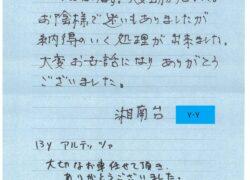 お陰様で迷いもありましたが
納得のいく処理が出来ました。
大変お世話になり ありがとう
ございました。
湘南台 Y・Y
13y アルテッツァ
大切なお車任せて頂き、
ありがとうございました。